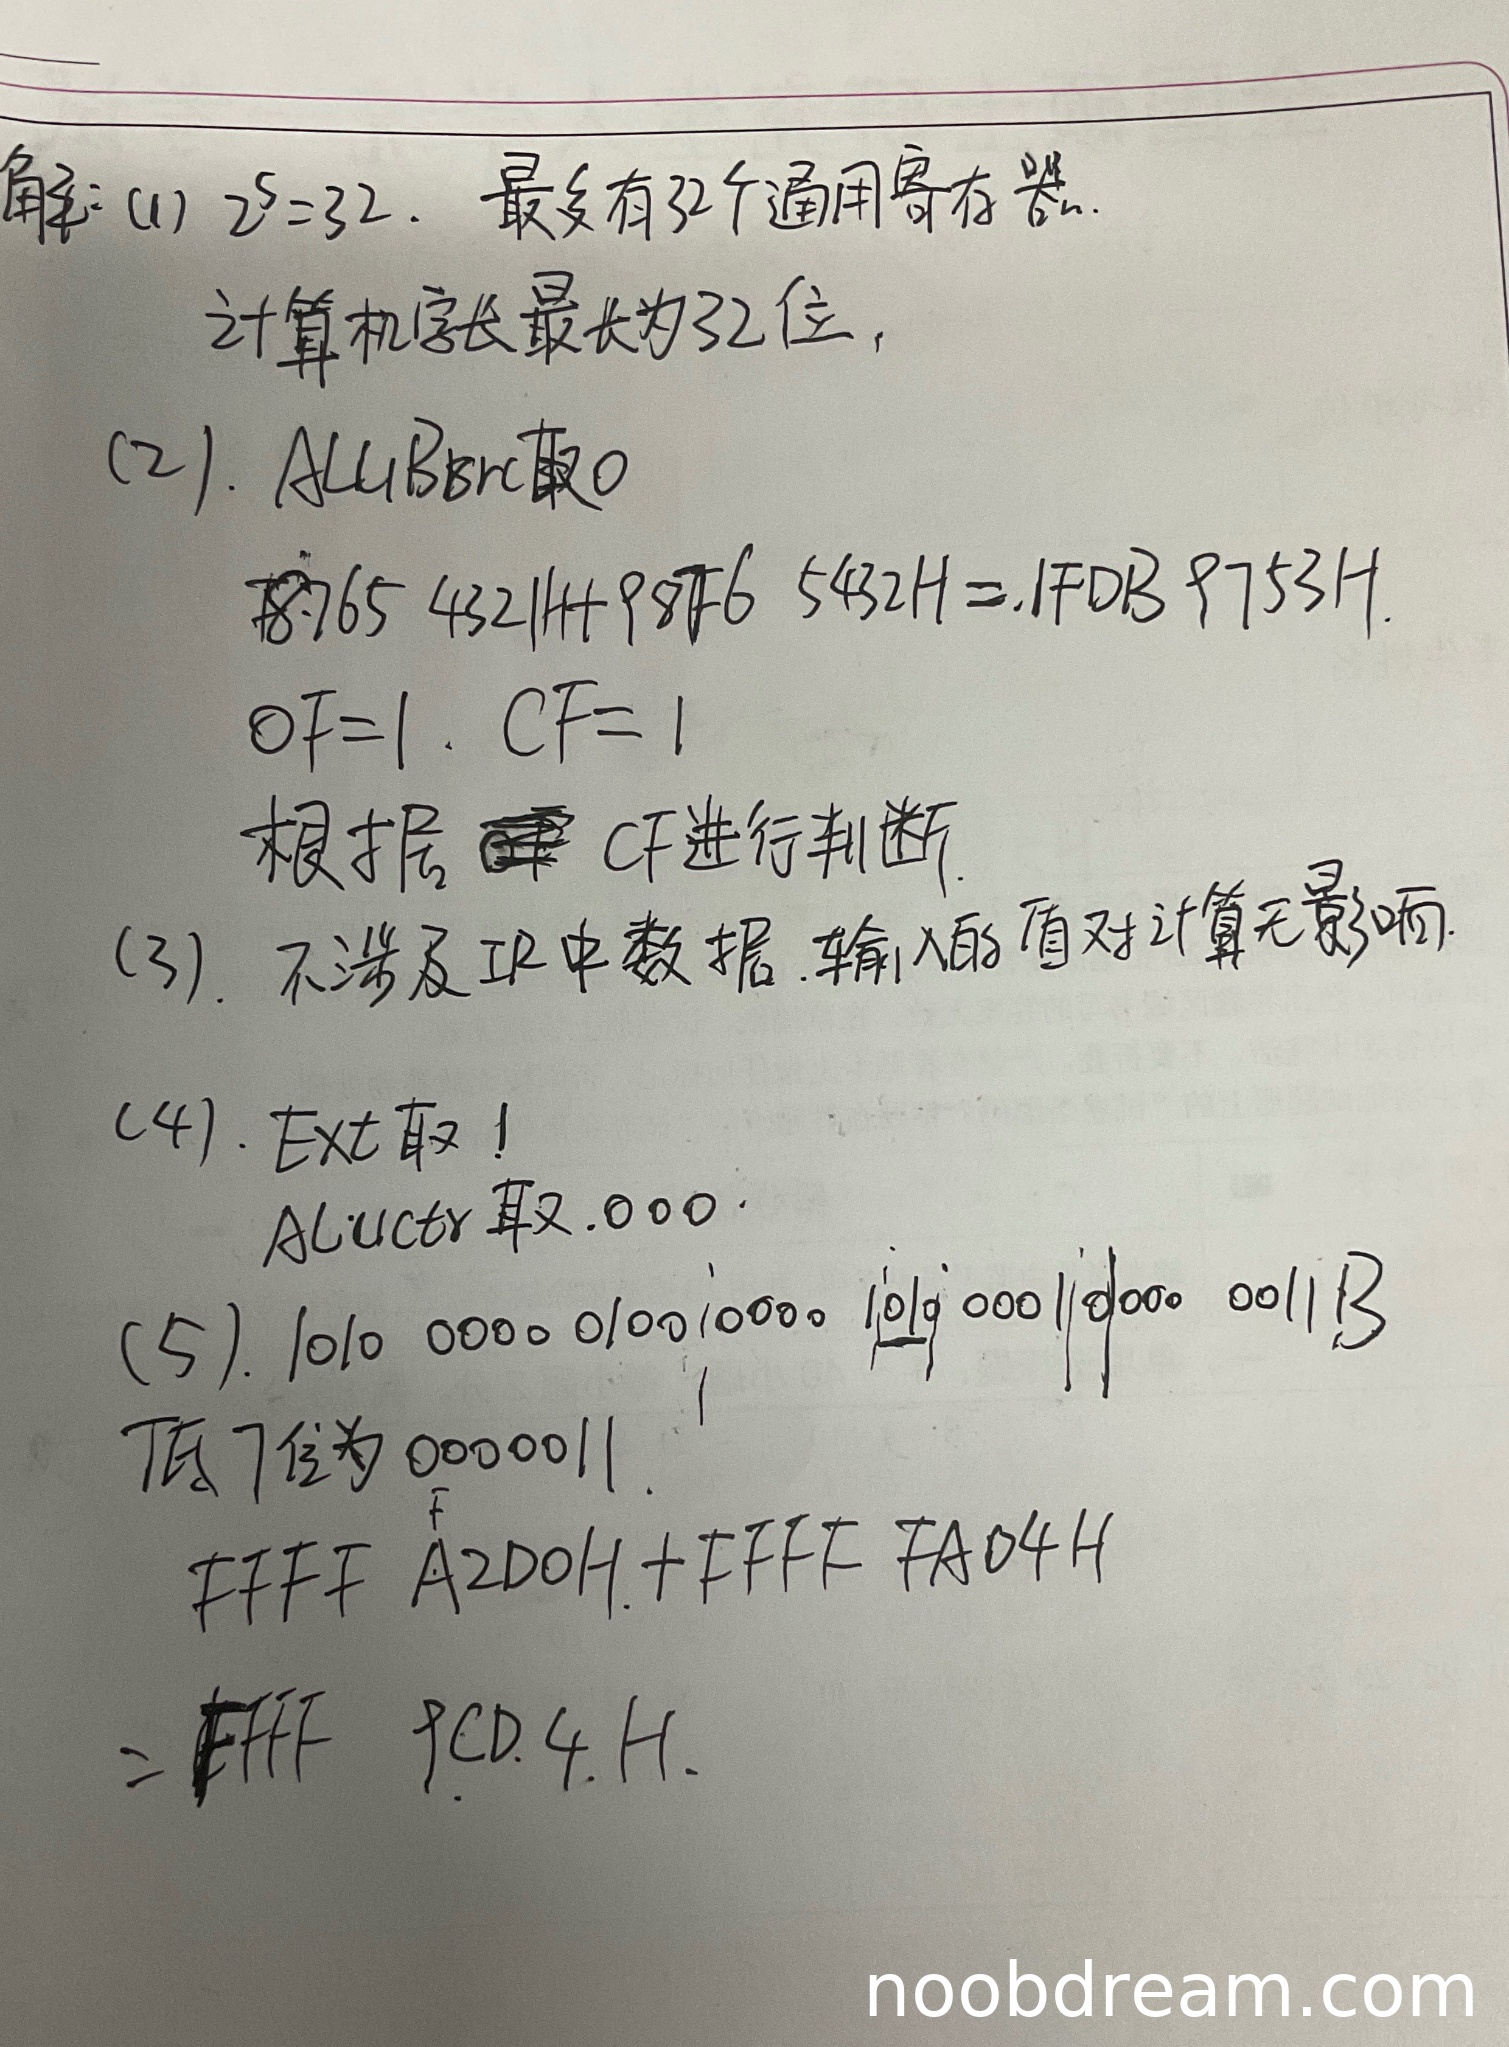 解:(1) 2⁵=32. 最多有32个通用寄存器.
计算机字长最长为32位,
(2). ALUBsrc取0
8765 4321H+9876 5432H=1FDB9753H.
OF=1. CF=1
根据 CF进行判断.
(3). 不涉及IR中数据.输入的值对计算无影响.
(4). Ext取1
ALUctr取.000.
(5). 1010 0000 0100 0000 1010 0001 1000 0011B
低7位为0000011.
F
FFFF A2D0H.+FFFF FA04H
=FFFF 9CD.4.H.
noobdream.com